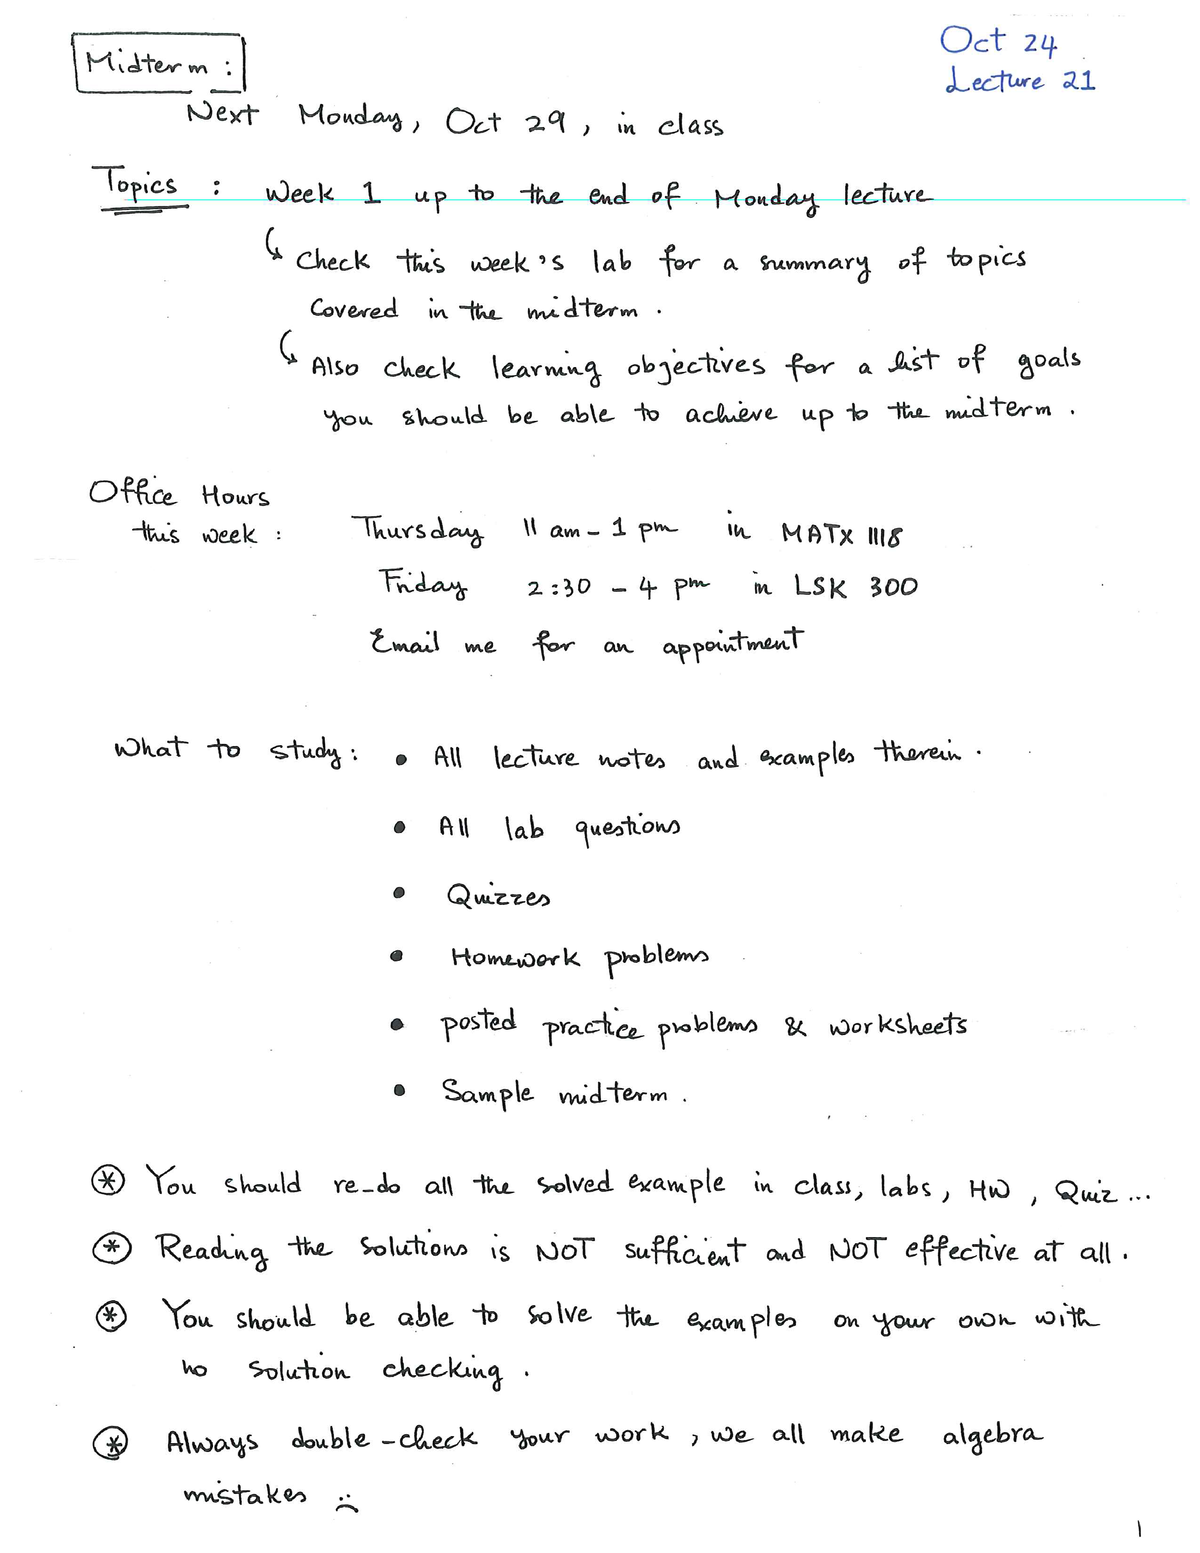 Oct 24
Lecture 21
Midterm :
Next Monday, Oct 29, in class
Topics : Week 1 up to the end of Monday lecture
↳ Check this week's lab for a summary of topics
Covered in the midterm.
↳ Also check learning objectives for a list of goals
you should be able to achieve up to the midterm.
Office Hours
this week : Thursday 11 am - 1 pm in MATX 1118
Friday 2:30 - 4 pm in LSK 300
Email me for an appointment
What to study : • All lecture notes and examples therein.
• All lab questions
• Quizzes
• Homework problems
• posted practice problems & worksheets
• Sample midterm.
⊛ You should re-do all the solved example in class, labs, HW, Quiz ...
⊛ Reading the solutions is NOT sufficient and NOT effective at all.
⊛ You should be able to solve the examples on your own with
no solution checking.
⊛ Always double-check your work, we all make algebra
mistakes ☹
1